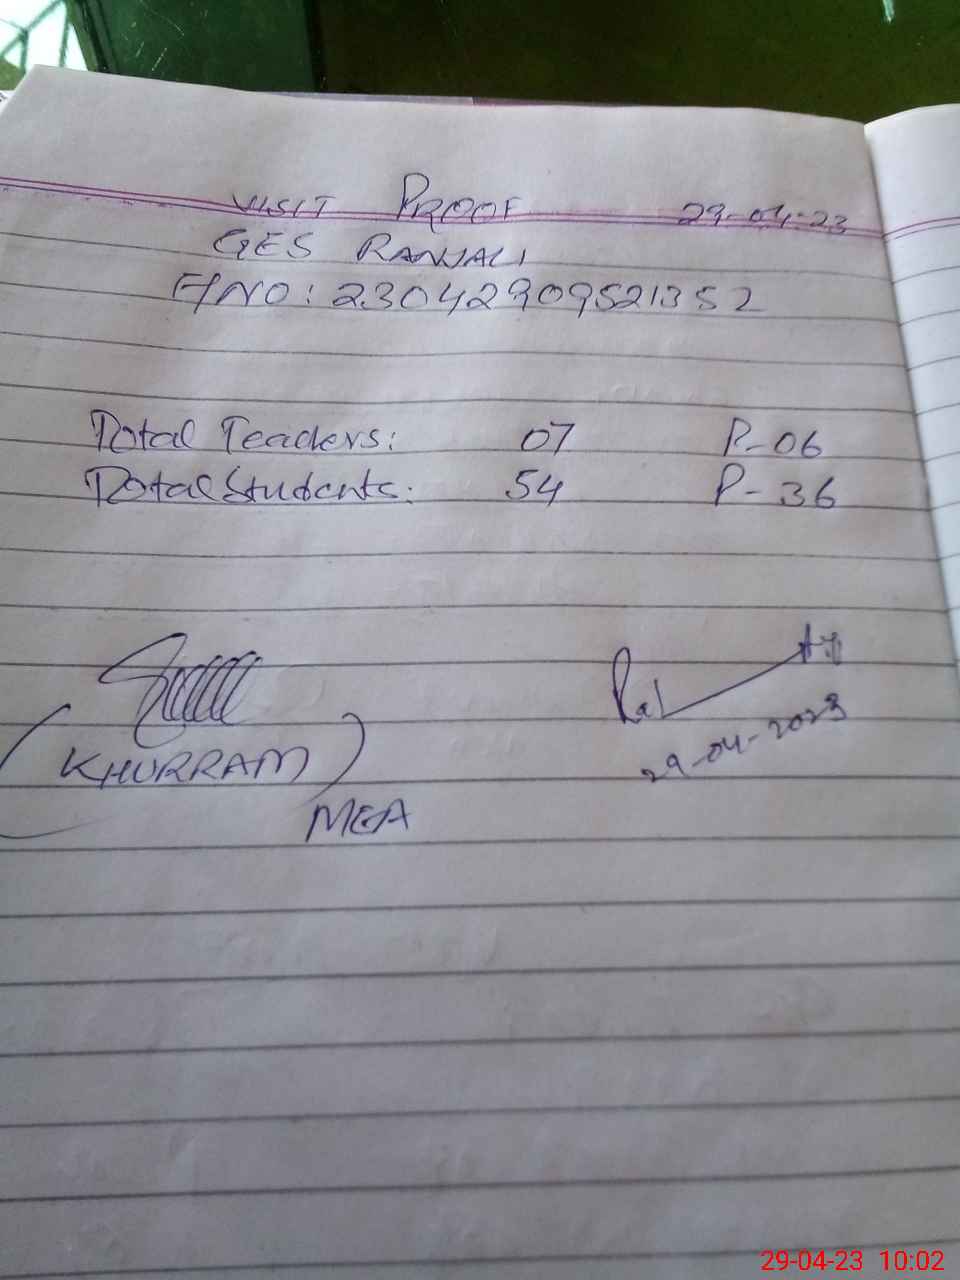 VISIT PROOF 29-04-23
GES RANJALI
F/NO: 23042909521352
Total Teachers: 07 P-06
Total Students: 54 P-36
(KHURRAM)
MEA
29-04-2023
29-04-23 10:02